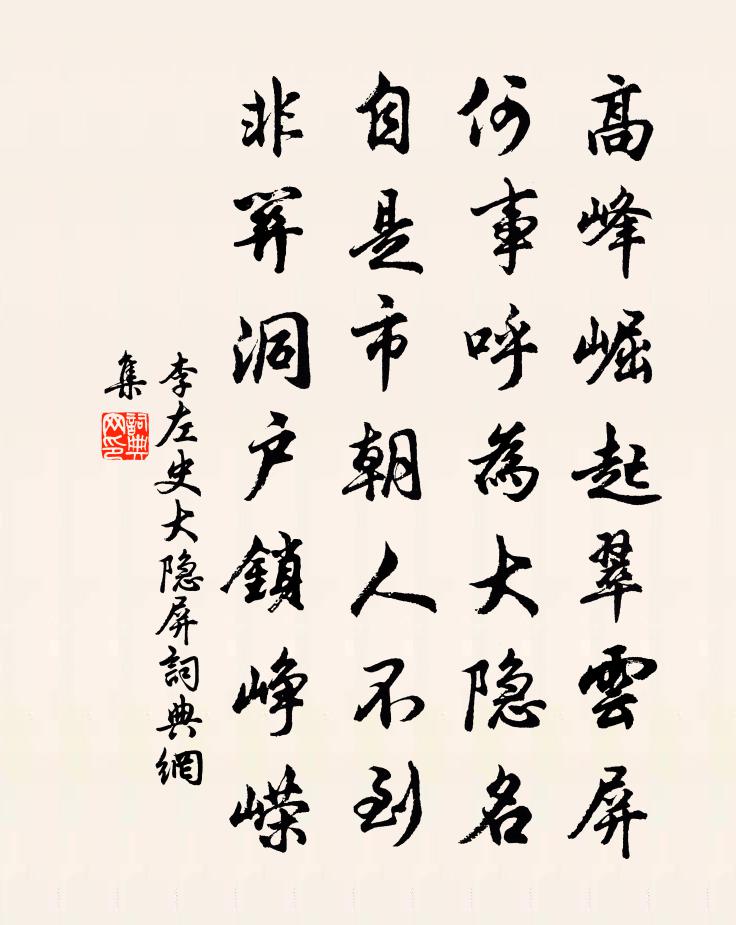 髙峰崛起翠雲屏
何事呼為大隐名
自是市朝人不到
非關洞户鎖峥嵘
李左史大隐屏詞典網
集
詞典网印